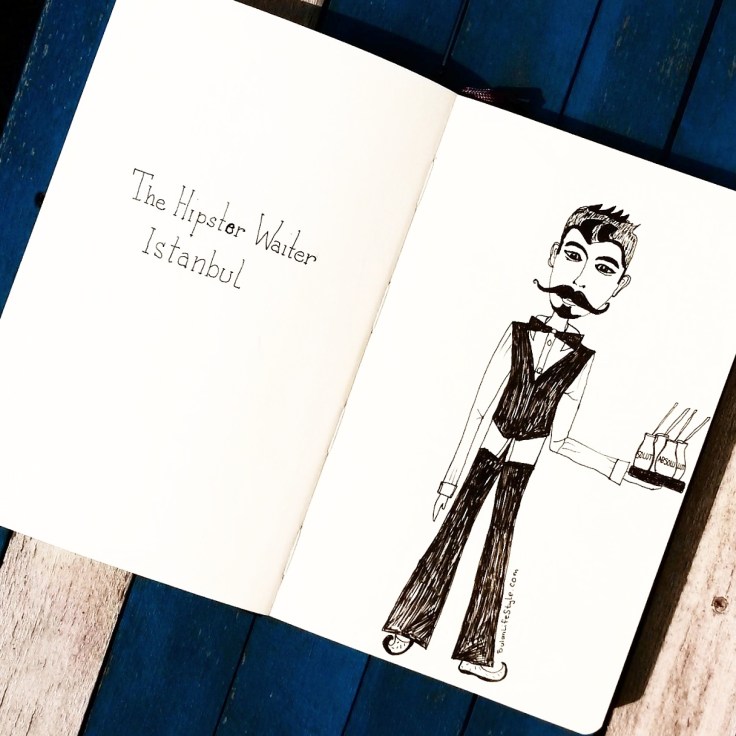 The Hipster Waiter
Istanbul
SOLUT ABSOLU LUT
BulmLifeStyle.com